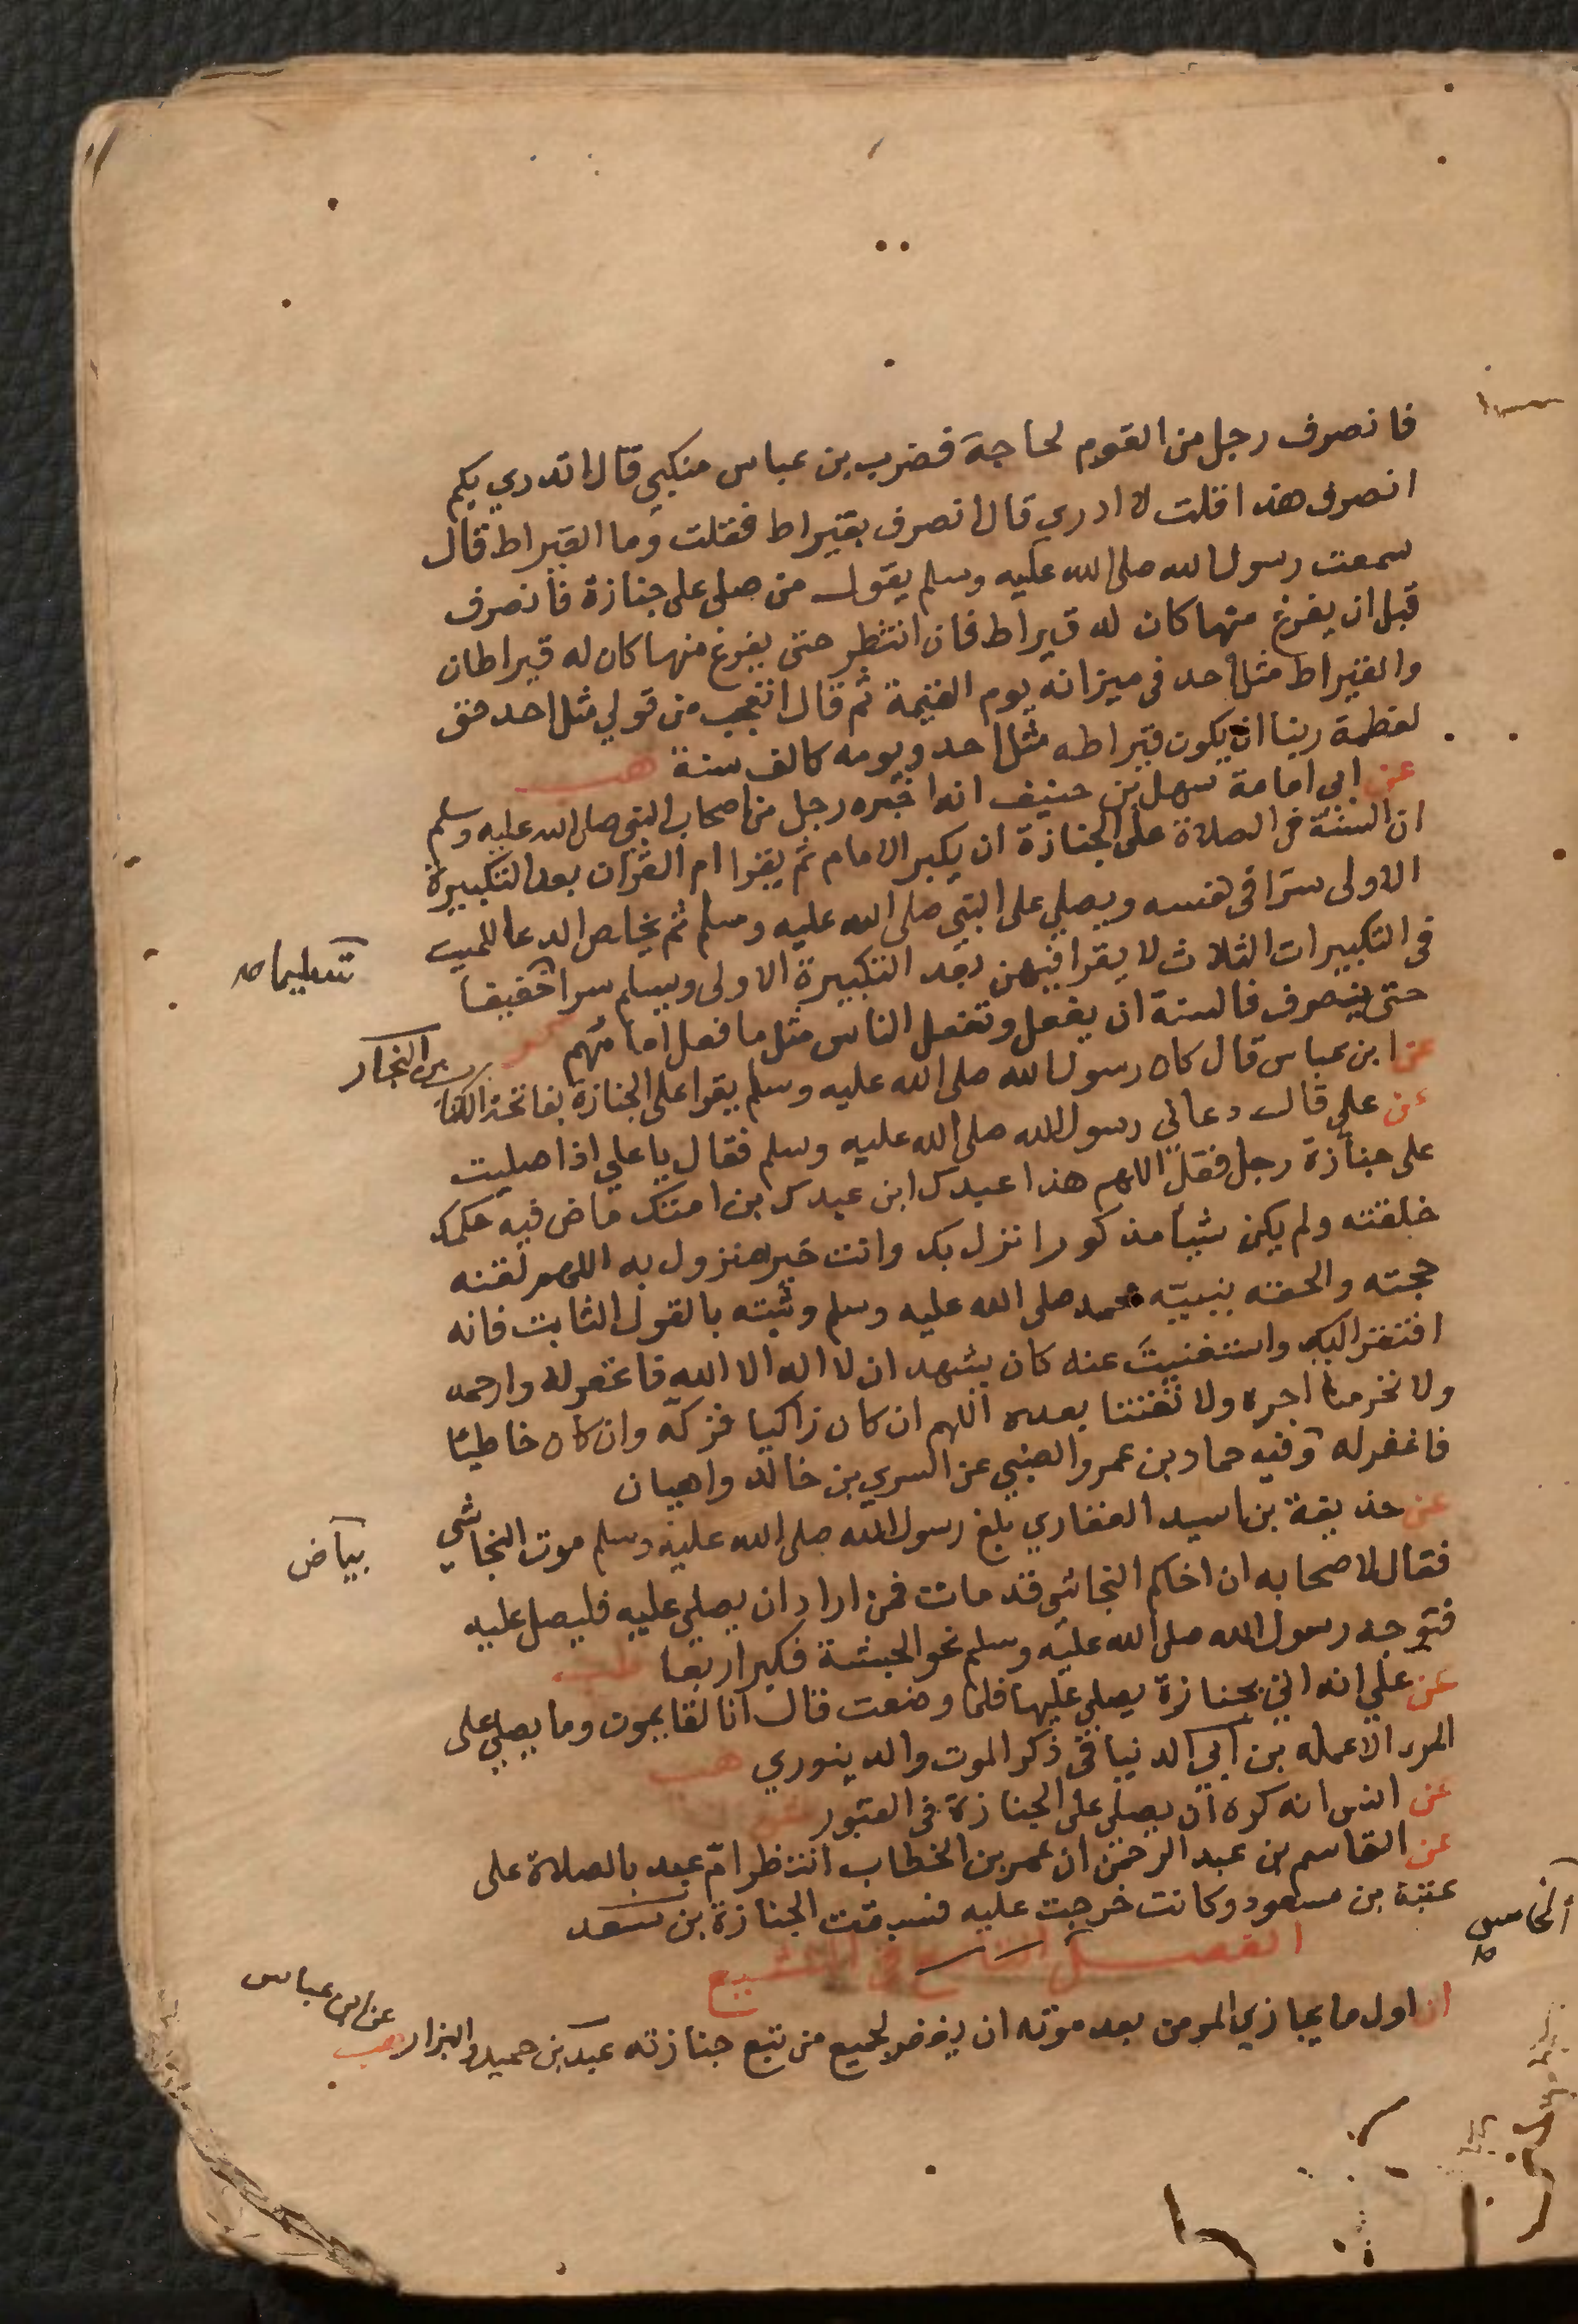 فانصرف رجل من القوم لحاجة فضرب بن عباس منكبي قال اتدري بكم
انصرف هذا قلت لا ادري قال انصرف بقيراط فقلت وما القيراط قال
سمعت رسول الله صلى الله عليه وسلم يقول من صلى على جنازة فانصرف
قبل ان يفرغ منها كان له قيراط فان انتظر حتى يفرغ منها كان له قيراطان
والقيراط مثل احد في ميزانه يوم القيمة ثم قال اتعجب من قولي مثل احد حق
لعظمة ربنا ان يكون قيراطه مثل احد ويومه كالف سنة هب
عن ابي امامة سهل بن حنيف انه اخبره رجل من اصحاب النبي صلى الله عليه وسلم
ان السنة في الصلاة على الجنازة ان يكبر الامام ثم يقرا ام القران بعد التكبيرة
الاولى سرا في نفسه ويصلي على النبي صلى الله عليه وسلم ثم يخلص الدعا للميت
في التكبيرات الثلاث لا يقرا فيهن بعد التكبيرة الاولى ويسلم سرا خفيفا
تسليما صح
حتى ينصرف فالسنة ان يفعل وتفعل الناس مثل ما فعل امامهم كر
عن ابن عباس قال كان رسول الله صلى الله عليه وسلم يقرا على الجنازة بفاتحة الكتاب
بن النجار
عن علي قال دعاني رسول الله صلى الله عليه وسلم فقال يا علي اذا صليت
على جنازة رجل فقل اللهم هذا عبدك ابن عبدك بن امتك ماض فيه حكمك
خلقته ولم يكن شيأ مذكورا نزل بك وانت خير منزول به اللهم لقنه
حجته والحقه بنبيه محمد صلى الله عليه وسلم وثبته بالقول الثابت فانه
افتقر اليك واستغنيت عنه كان يشهد ان لا اله الا الله فاغفر له وارحمه
ولا تحرمنا اجره ولا تفتنا بعده اللهم ان كان زاكيا فزكه وان كان خاطيئا
فاغفر له وفيه حماد بن عمرو الضبي عن السري بن خالد واهيان
عن حذيفة بن اسيد الغفاري بلغ رسول الله صلى الله عليه وسلم موت النجاشي
بياض
فقال لاصحابه ان اخاكم النجاشي قد مات فمن اراد ان يصلي عليه فليصل عليه
فتوجه رسول الله صلى الله عليه وسلم نحو الحبشة فكبر اربعا طب
عن علي انه اتي بجنازة يصلي عليها فلما وضعت قال انا لقايمون وما يصلي على
المرء الا عمله بن ابي الدنيا في ذكر الموت والدينوري هب
عن انس انه كره ان يصلى على الجنازة في القبور
عن القاسم بن عبد الرحمن ان عمر بن الخطاب انتظر ام عبد بالصلاة على
عتبة بن مسعود وكانت خرجت عليه فسبقت الجنازة بن سعد
الفصل في التشييع
الخامس
ان اول ما يجازي المومن بعد موته ان يغفر لجميع من تبع جنازته عبد بن حميد والبزار هب
عن ابن عباس